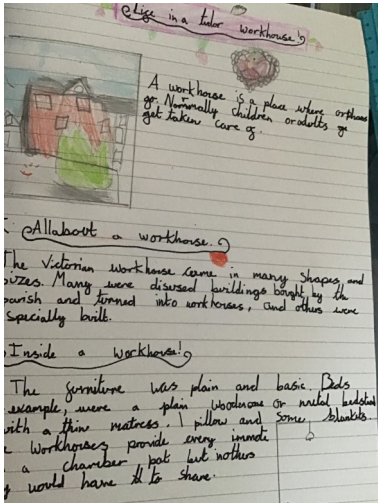 Life in a tudor workhouse!
A workhouse is a place where orphans
go. Normally children or adults go
get taken care of.
All about a workhouse.
The Victorian workhouse came in many shapes and
sizes. Many were disused buildings bought by the
parish and turned into workhouses, and others were
specially built.
Inside a workhouse!
The furniture was plain and basic. Beds
example, were a plain wooden or metal bedstead
with a thin matress. 1 pillow and some blankets.
Workhouses provide every
a chamber pot but
would have to share.